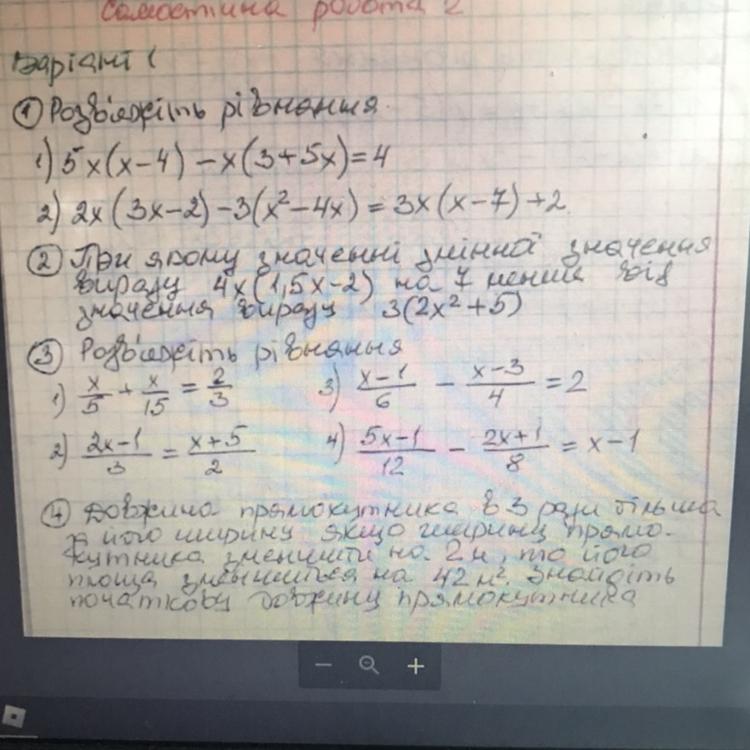 Самостійна робота 2
Варіант 1
① Розв'яжіть рівняння.
1) 5x(x-4) -x(3+5x)=4
2) 2x(3x-2)-3(x²-4x) = 3x(x-7)+2
② При якому значенні змінної значення
виразу 4x(1,5x-2) на 7 менше від
значення виразу 3(2x²+5)
③ Розв'яжіть рівняння
1) x/5 + x/15 = 2/3 3) x-1/6 - x-3/4 = 2
2) 2x-1/3 = x+5/2 4) 5x-1/12 - 2x+1/8 = x-1
④ Довжина прямокутника в 3 рази більша
його ширину якщо ширину прямо-
кутника зменшити на 2м, то його
площа зменшиться на 42 м². Знайдіть
початкову довжину прямокутника